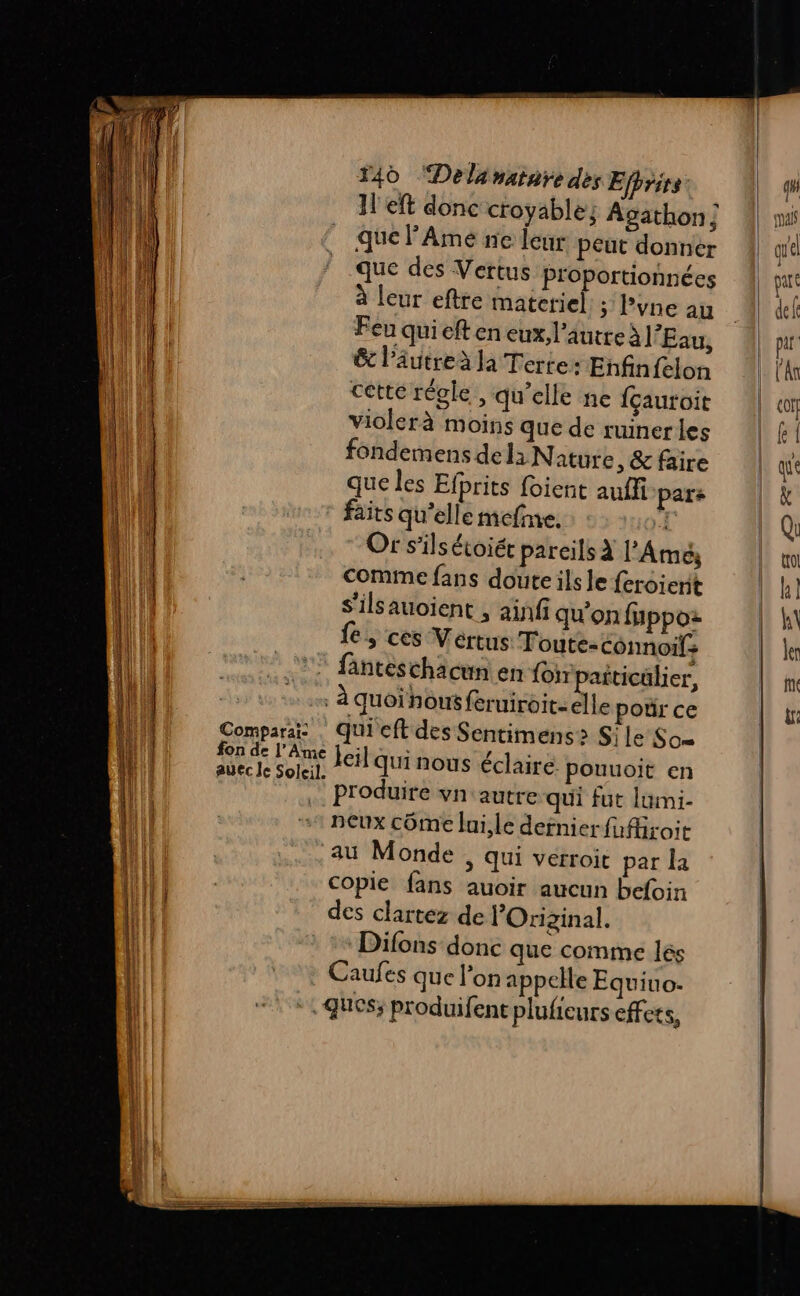 140 De la nature des Eſprits
Il eſt donc croyable, Agathon,
que l'Ame ne leur peut donner
que des Vertus proportionnées
à leur eſtre materiel ; l'vne au
Feu qui eſt en eux, l'autre à l'Eau,
& l'autre à la Terre: Enfin ſelon
cette régle, qu'elle ne ſçauroit
violer à moins que de ruiner les
fondemens de la Nature, & faire
que les Eſprits ſoient auſſi par-
faits qu'elle meſme.
Or s'ils étoiét pareils à l'Ame,
comme ſans doute ils le ſeroient
s'ils auoient, ainſi qu'on ſuppo-
ſe, ces Vertus Toute-connoiſ-
ſantes chacun en ſon particulier,
à quoi nous ſeruiroit-elle pour ce
qui eſt des Sentimens? Si le So-
Comparai-
ſon de l'Ame
auec le Soleil.
leil qui nous éclaire pouuoit en
produire vn autre qui fut lumi-
neux cõme lui, le dernier ſuffiroit
au Monde, qui verroit par la
copie ſans auoir aucun beſoin
des clartez de l'Original.
Diſons donc que comme les
Cauſes que l'on appelle Equiuo-
ques, produiſent pluſieurs effets,